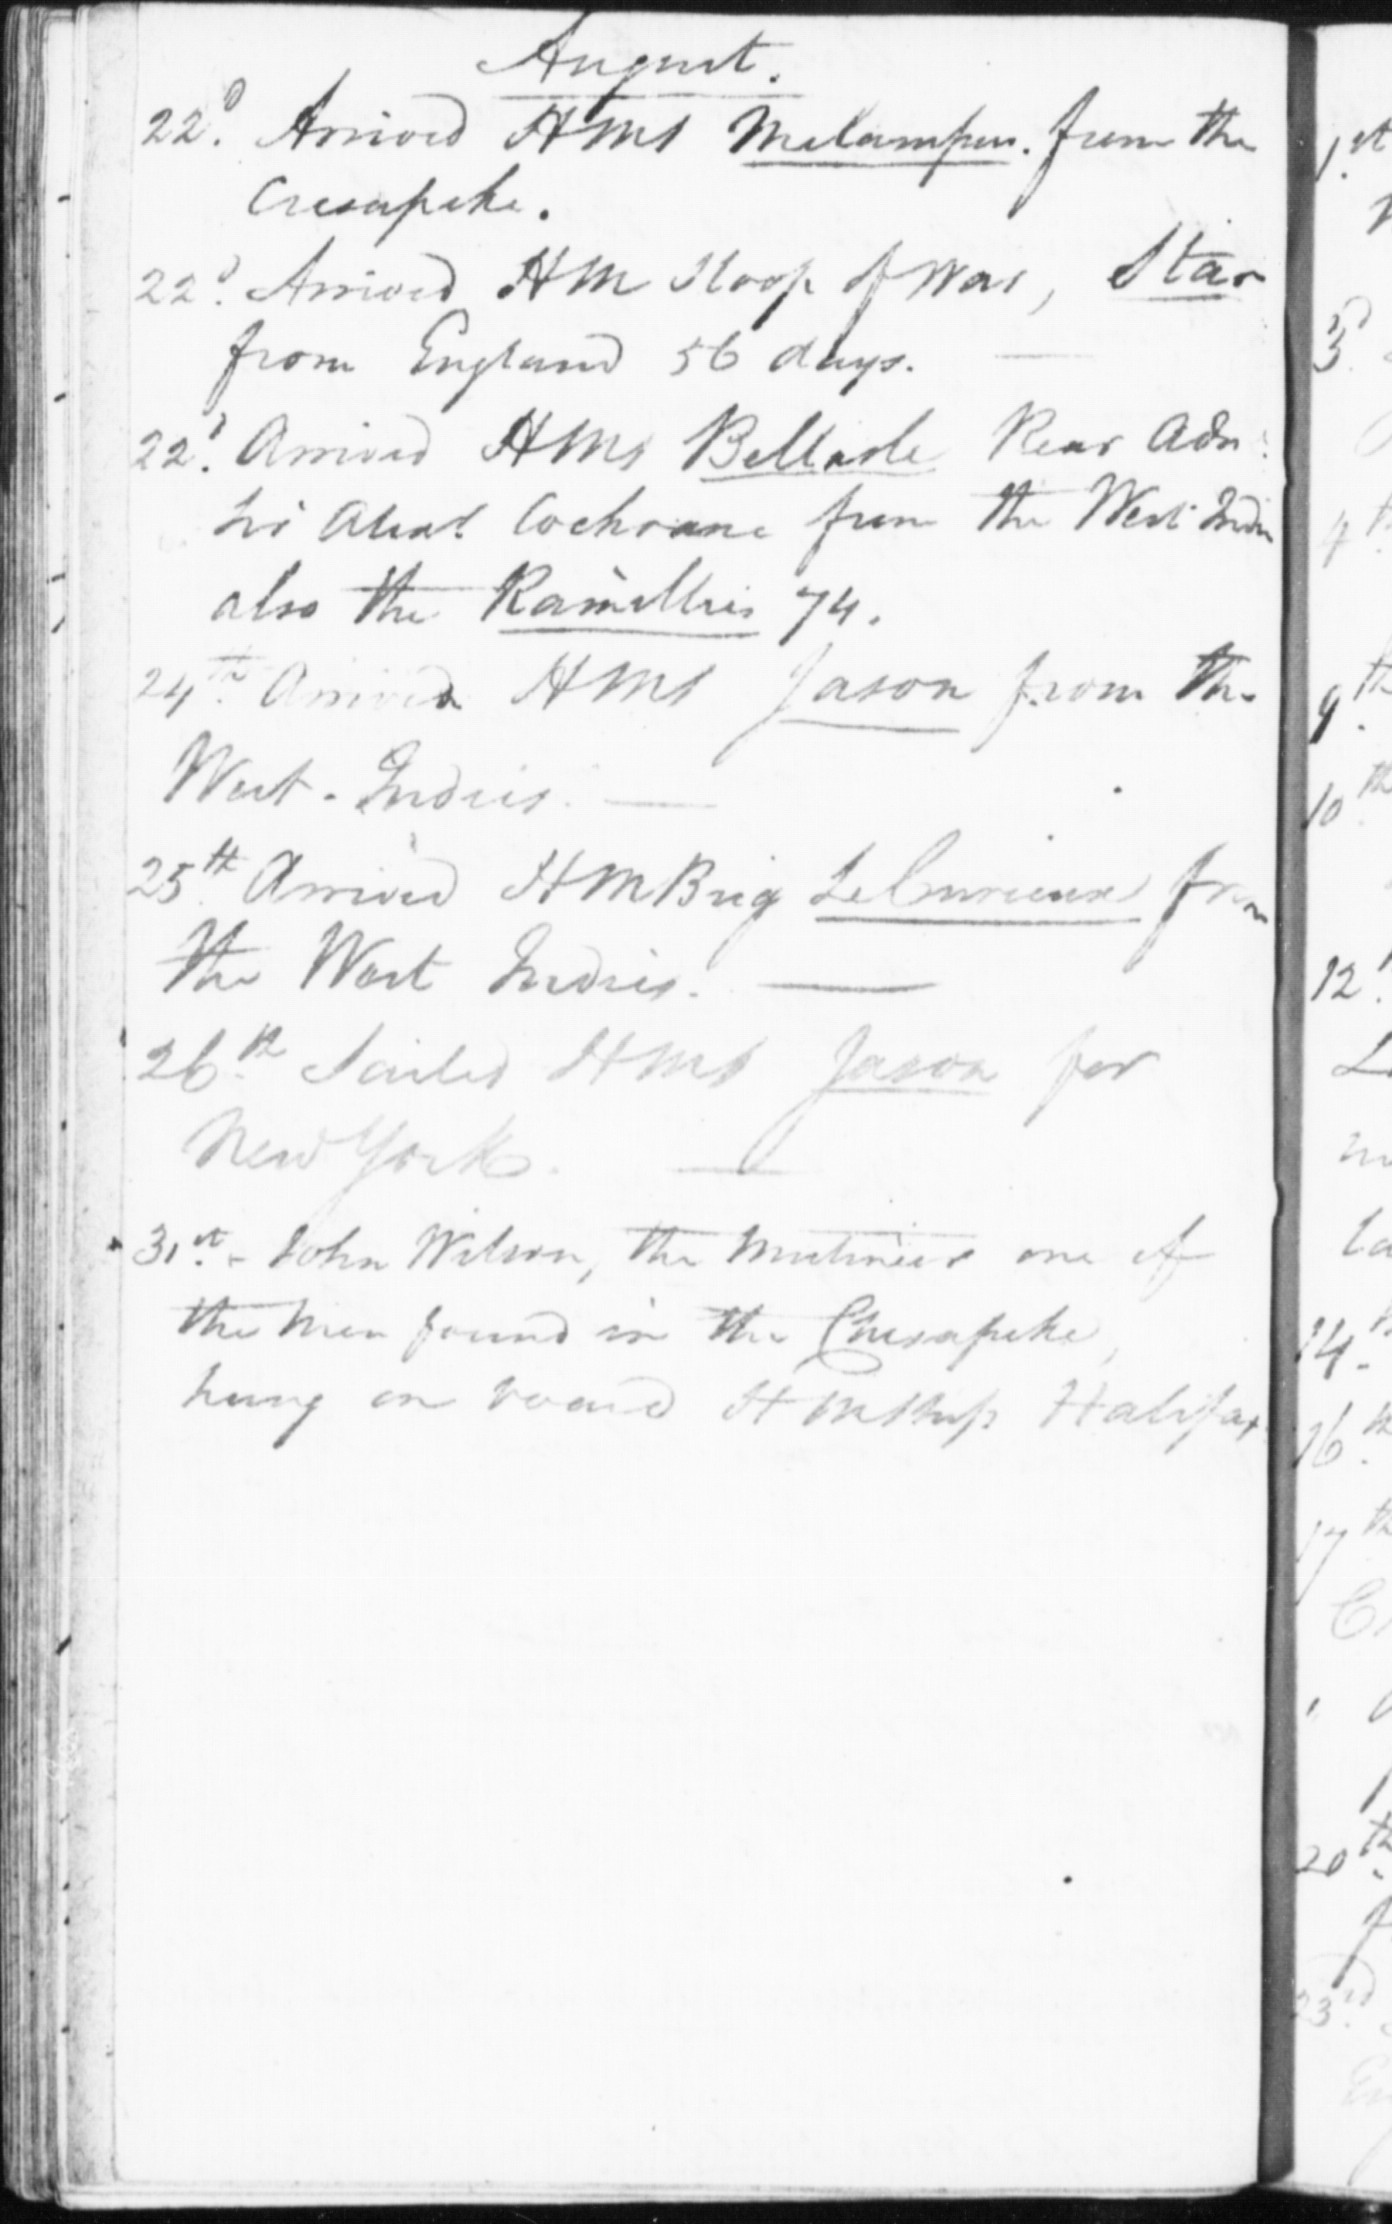 August.
22d. Arrived HMS Melampus. from the
Cresapeke.
22d. Arrived HM Sloop of War, Star
from England 56 days.
22d. Arrived HMS Bellisle Rear Adm:
Sir Alexr. Cochrane from the West Indies
also the Ramillies 74.
24th. Arrived HMS Jason from the
West-Indies.
25th Arrived HM Brig Le Curieux from
the West Indies.
26th. Sailed HMS Jason for
New York.
31st. - John Wilson, the Mutineer one of
the Men found in the Chesapeke,
hung on board HM Ship Halifax.
1st
3d
4th
9th
10th
12
14
16th
17th
20th
23rd